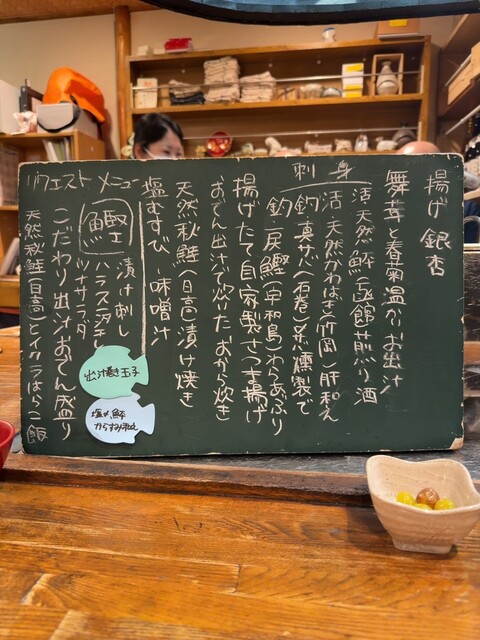 揚げ銀杏
舞茸と春菊温かいお出汁
刺身
活〆天然鮃(函館)煎り酒
活〆天然かわはぎ(竹岡)肝和え
釣 真サバ(石巻)氷燻製で
釣 戻鰹(宇和島)わらあぶり
揚げたて自家製さつま揚げ
おでん出汁で炊いたおから炊き
天然秋鮭(日高)漬け焼き
塩むすび 味噌汁
リクエストメニュー
鰹
漬け刺し
ハラスニンニク
ツナサラダ
こだわり出汁おでん盛り
天然秋鮭(日高)とイクラはらこ飯
出汁巻き玉子
塩〆鮃
からすみ和え